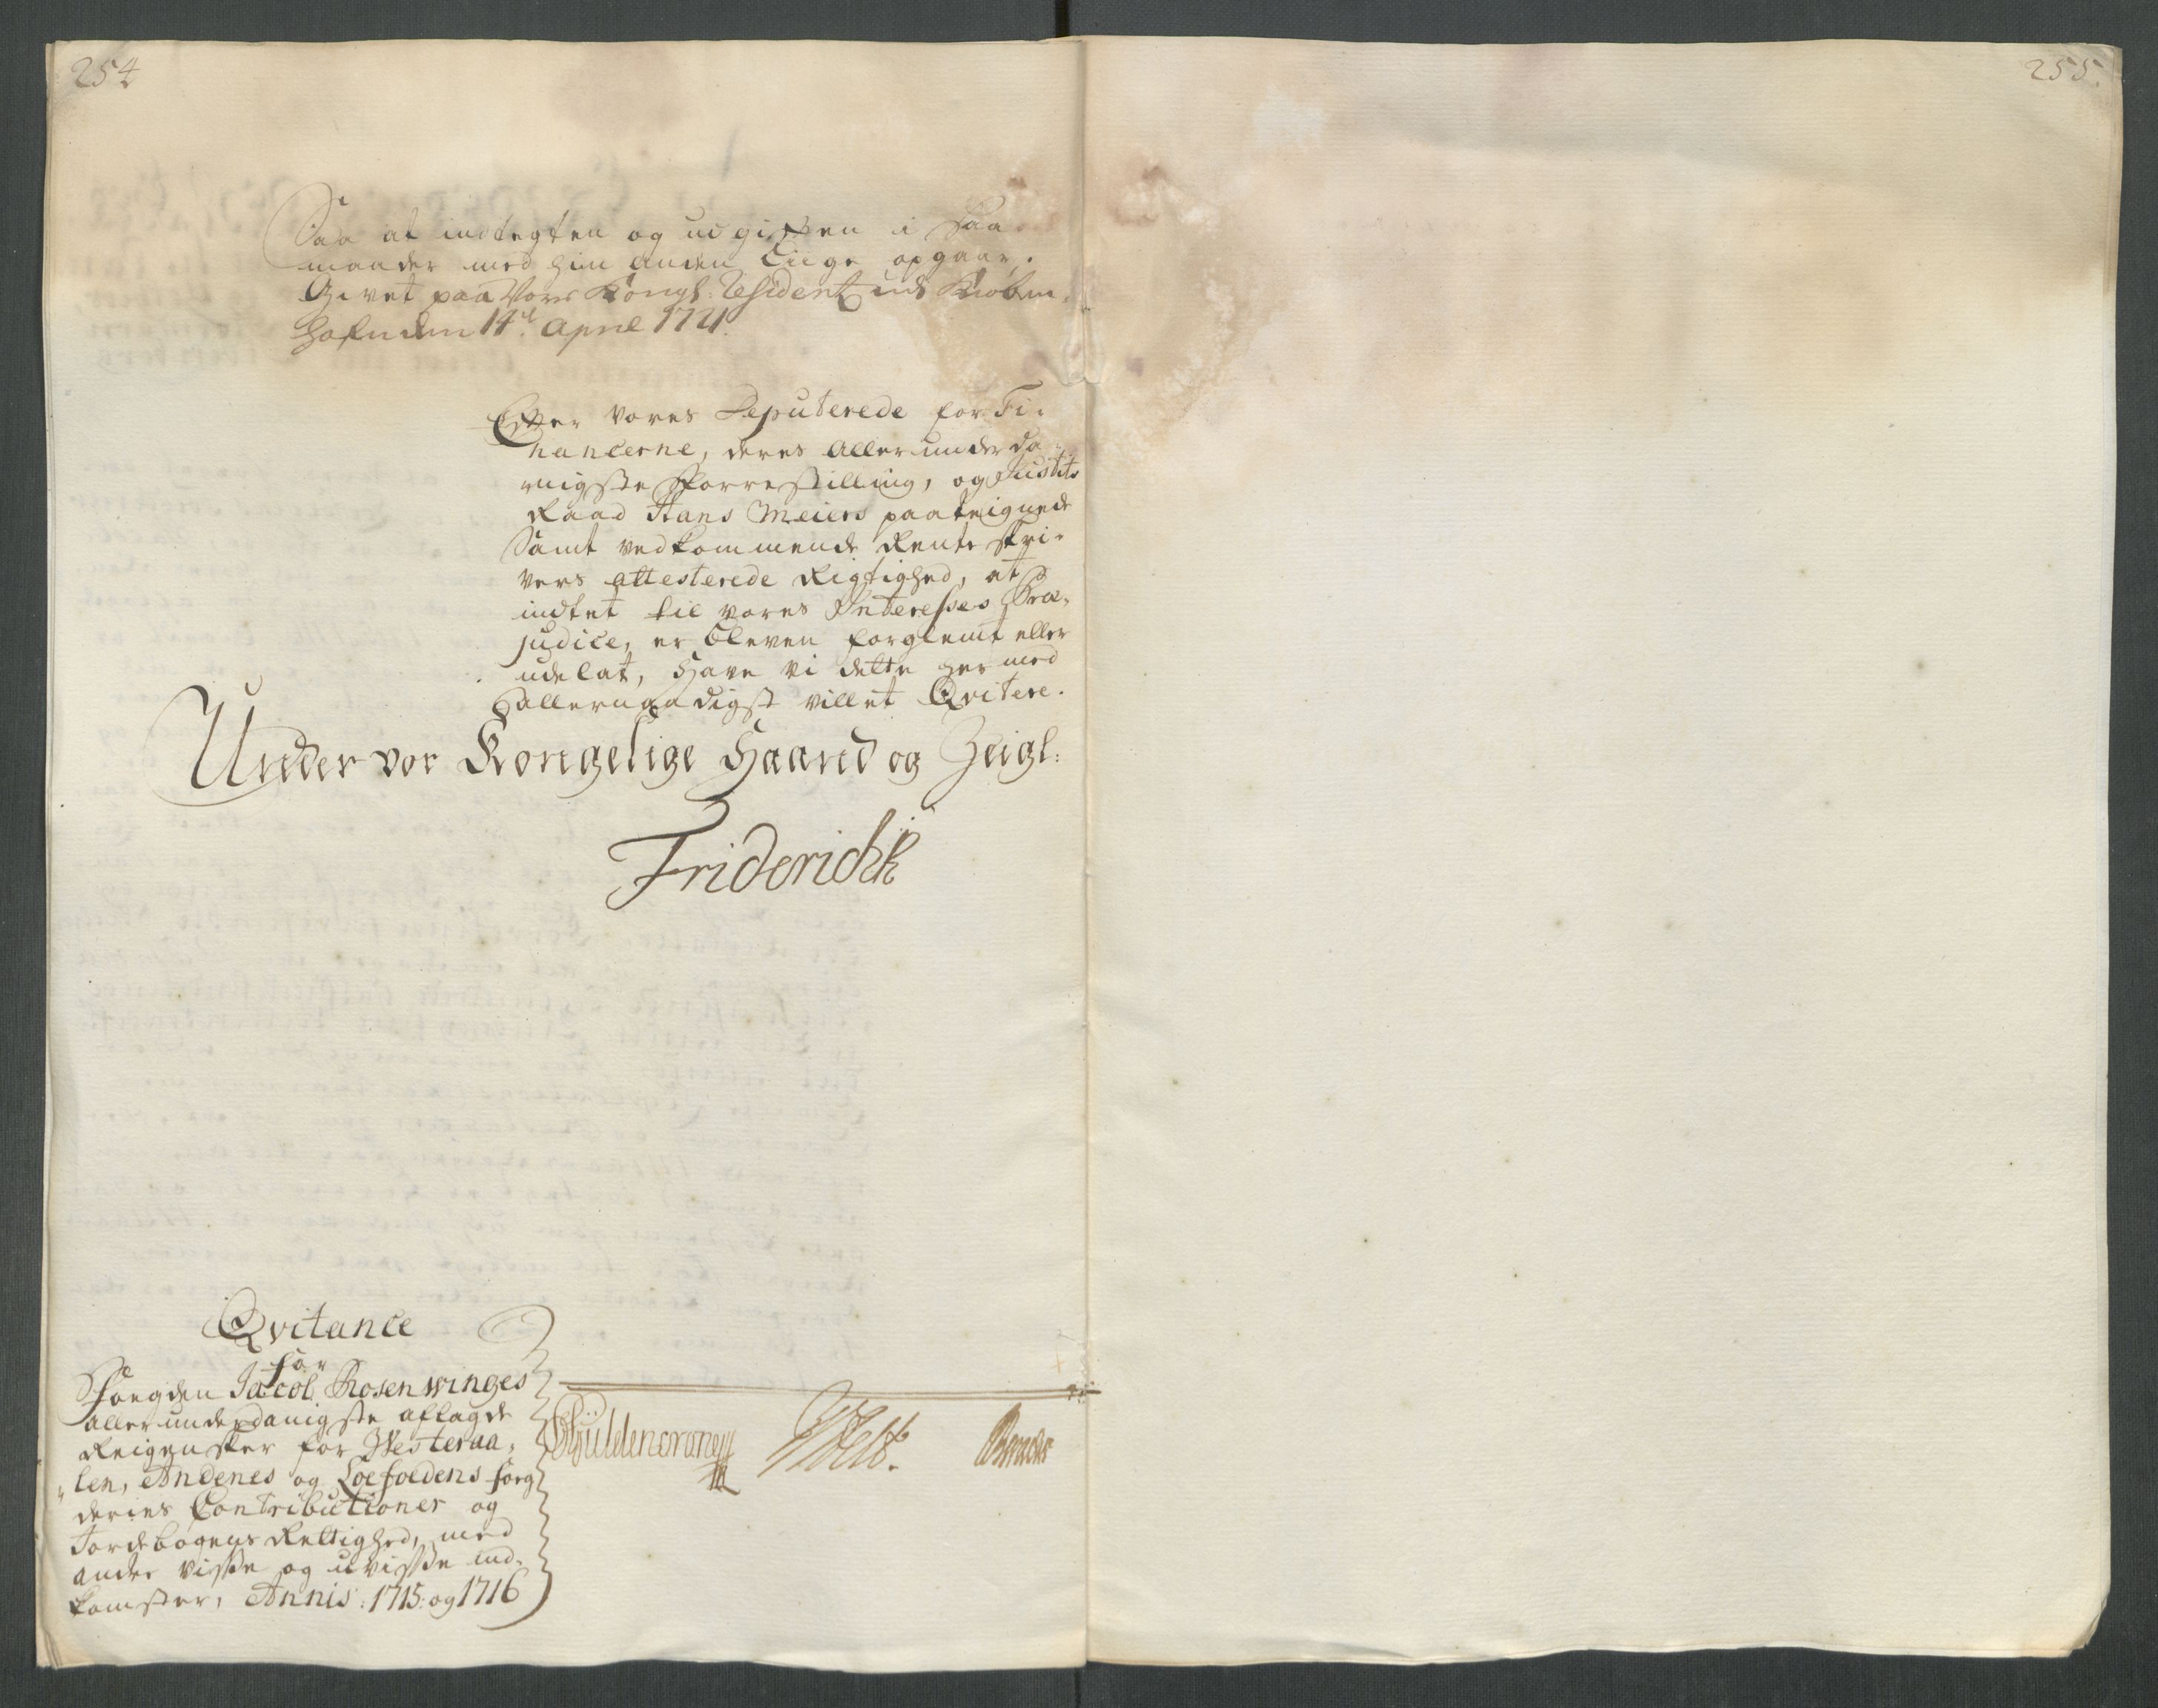 254
255.
Saa at indtegten og udgiften i Saa
maader med hin anden Liige opgaar.
Givet paa Vores Kongl: Resident udi Kiøben,
hafn den 14de April 1721.
Efter vores Deputerede for Fi-
nancerne, deres allerunderda-
nigste Forrestilling, og Justits
Raad Hans Meiers paateignede
Samt vedkommende Rente skri-
vers attesterede Rigtighed, at
indtet til vores Interesses Præ,
judice, er bleven forglemt eller
udelat, Have vi dette her med
allernaadigst villet Qvitere.
Under vor Kongelige Haand og Zeigl:
Friderich
Qvitance
for
Fogden Jacob Rosenwinges
allerunderdanigste aflagde
Reigensker for Westeraa,
len, Andenes og Loefoedens forg
deries Contributioner og
Jordebogens Rettighed, med
andre visse og uvisse ind,
komster, Annis: 1715: og 1716
Güldencrone